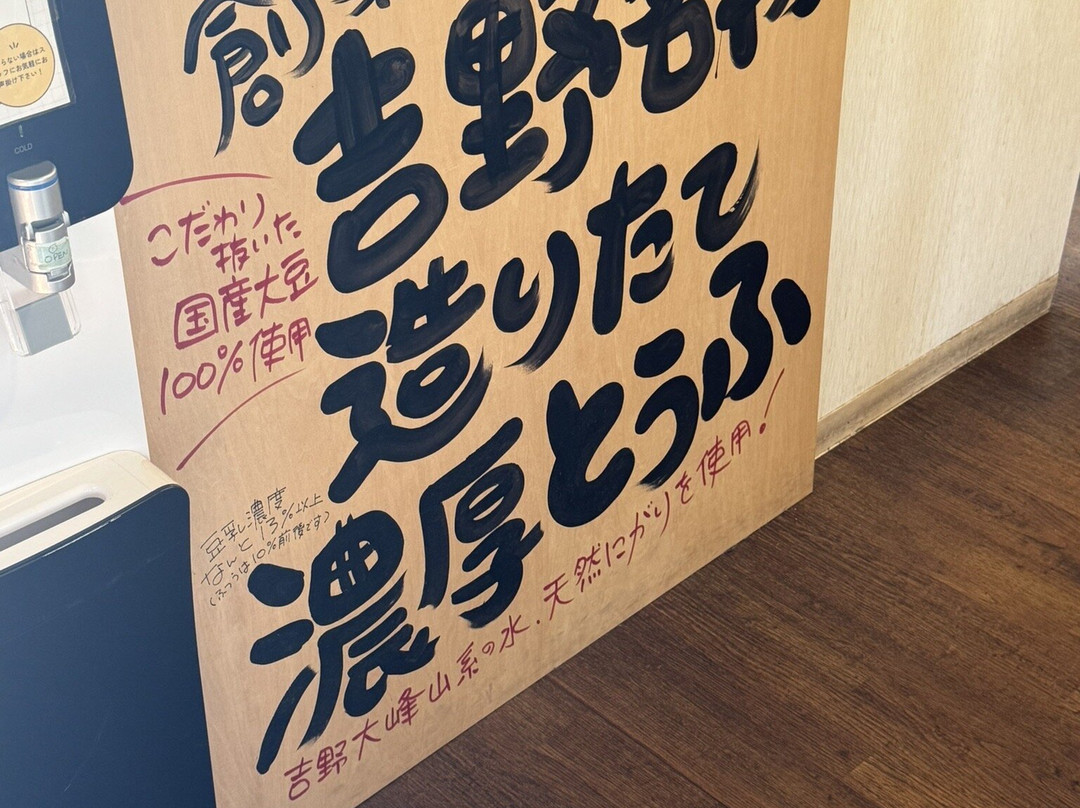 らない場合はス
フにお気軽にお
声掛け下さい！
COLD
OPEN
創
吉野
造りたて
濃厚とうふ
こだわり
抜いた
国産大豆
100％使用
豆乳濃度
なんと13％以上
(ふつうは10％前後です)
吉野大峰山系の水．天然にがりを使用！